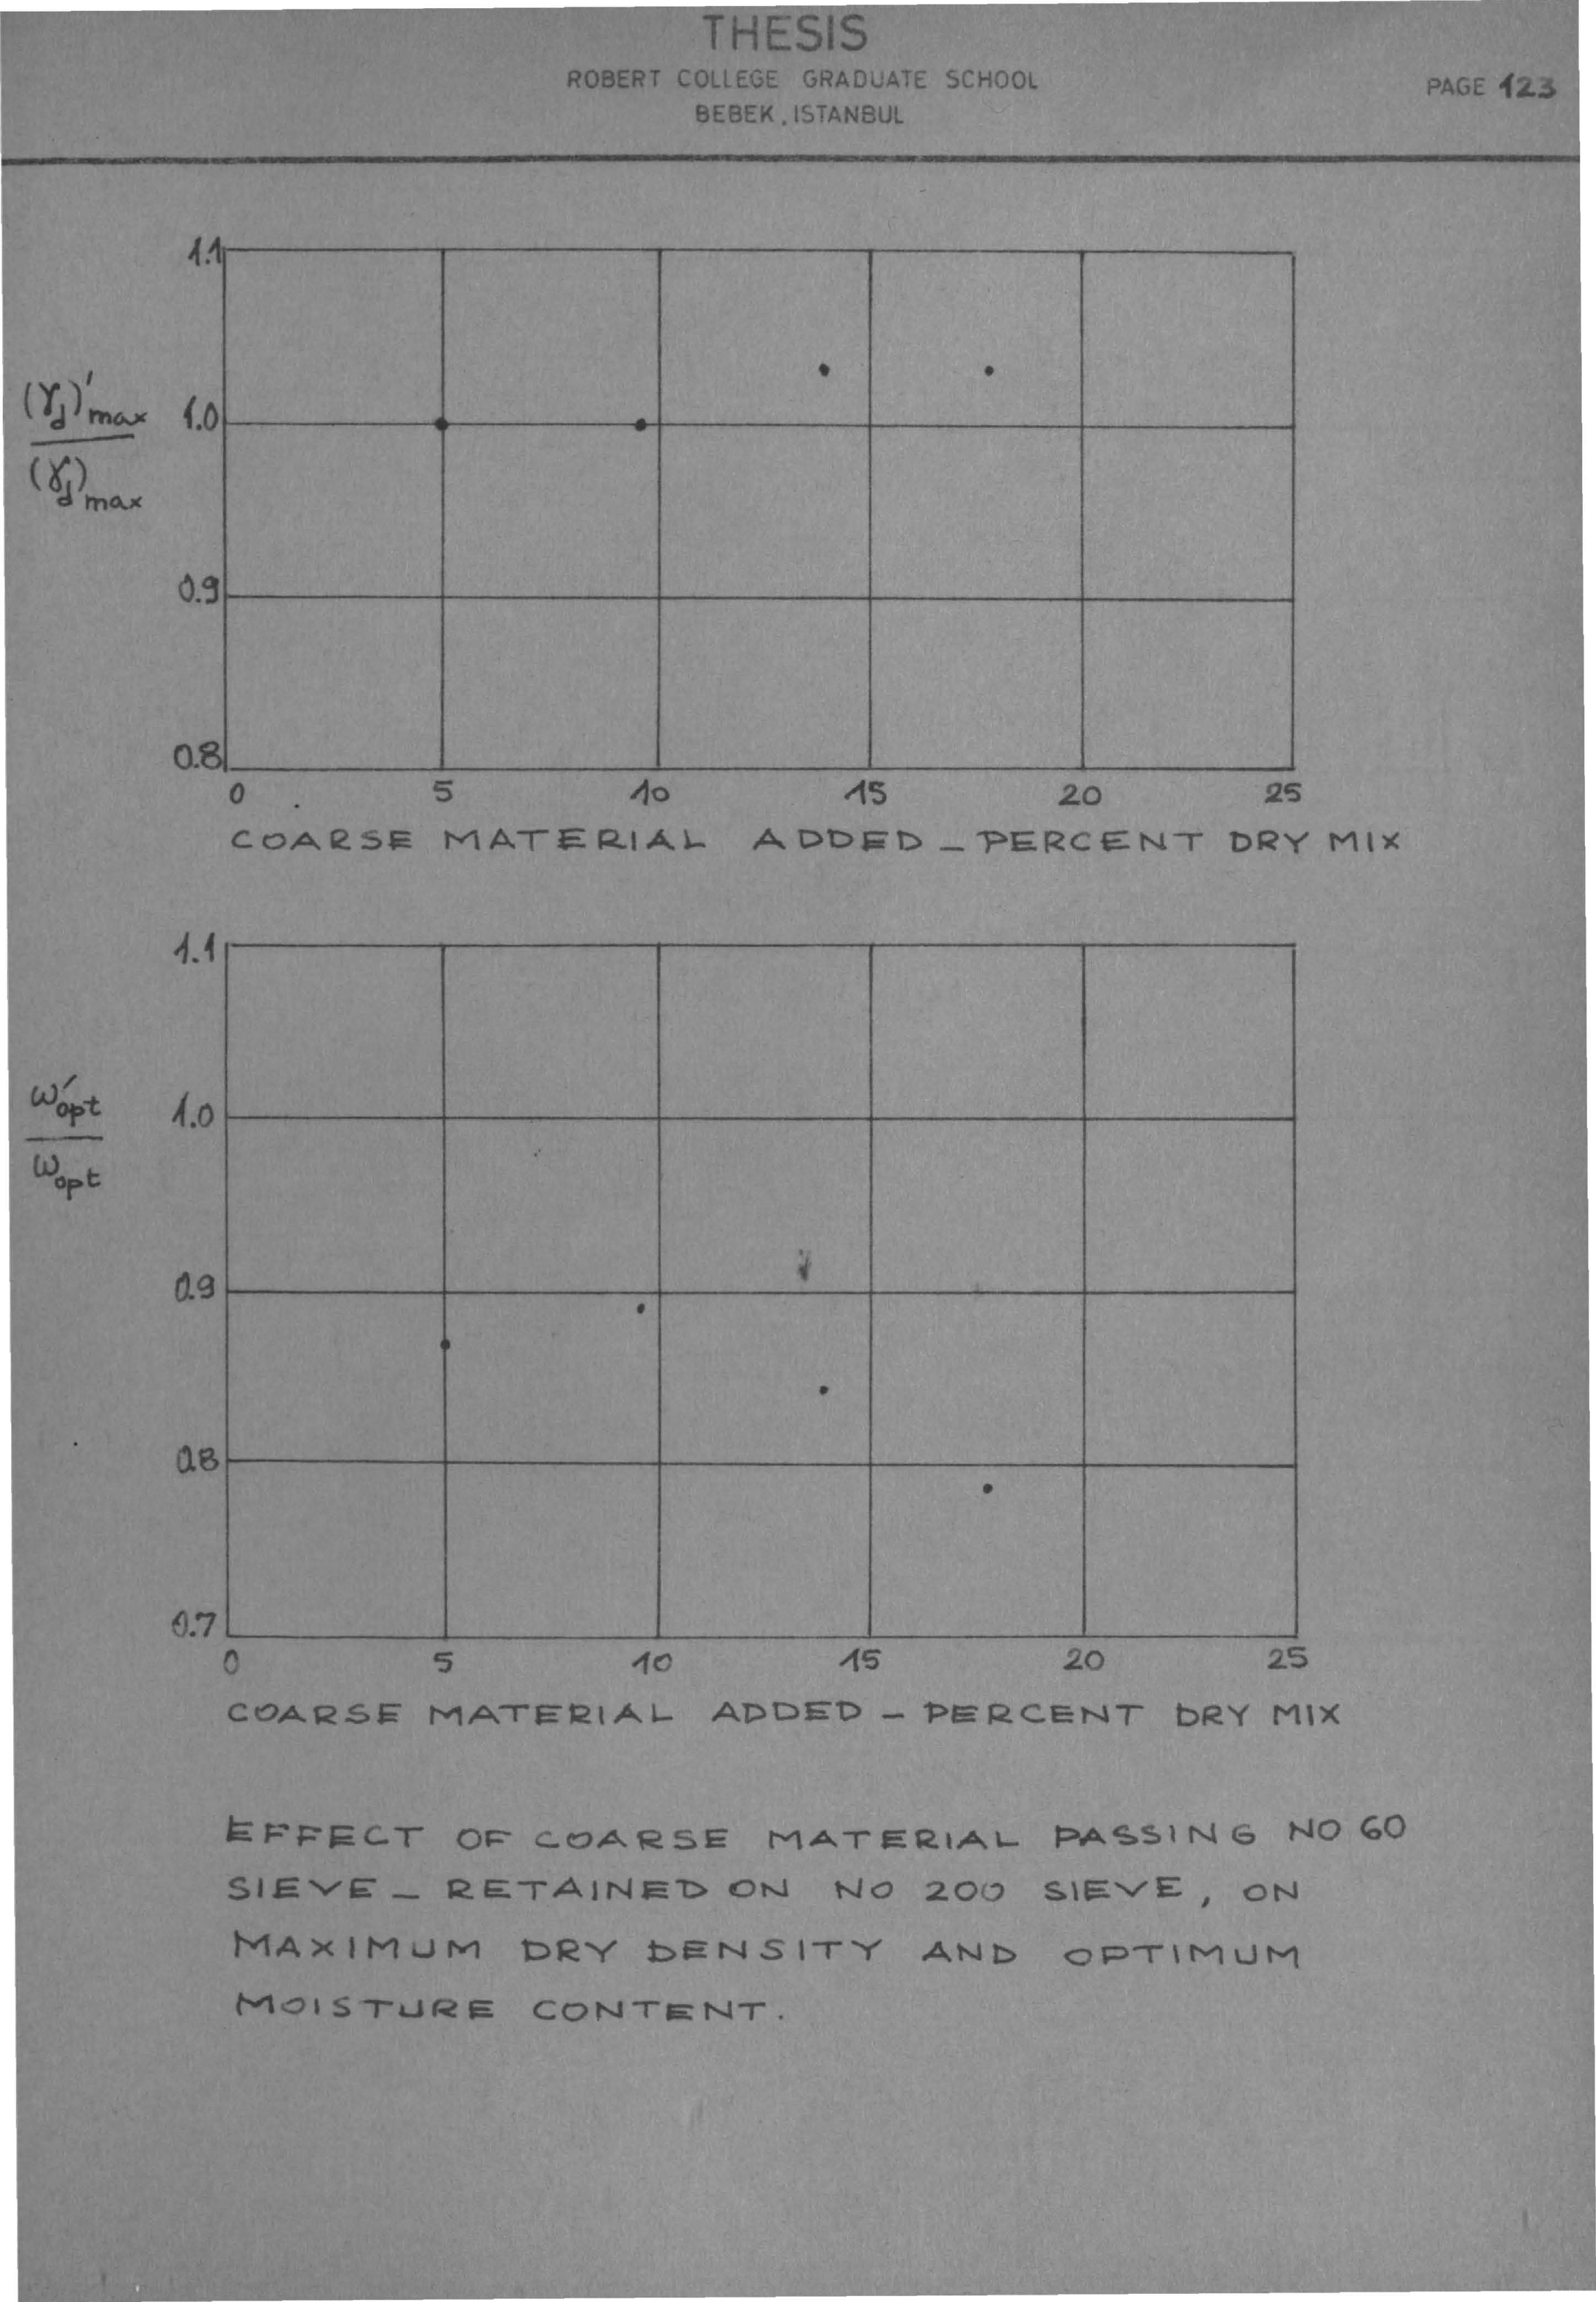 THESIS
ROBERT COLLEGE GRADUATE SCHOOL
BEBEK, ISTANBUL
PAGE 123
1.1
(γd)'max
1.0
(γd)max
0.9
0.8
0 5 10 15 20 25
COARSE MATERIAL ADDED - PERCENT DRY MIX
1.1
ω'opt
1.0
ωopt
0.9
0.8
0.7
0 5 10 15 20 25
COARSE MATERIAL ADDED - PERCENT DRY MIX
EFFECT OF COARSE MATERIAL PASSING NO 60
SIEVE - RETAINED ON NO 200 SIEVE, ON
MAXIMUM DRY DENSITY AND OPTIMUM
MOISTURE CONTENT.